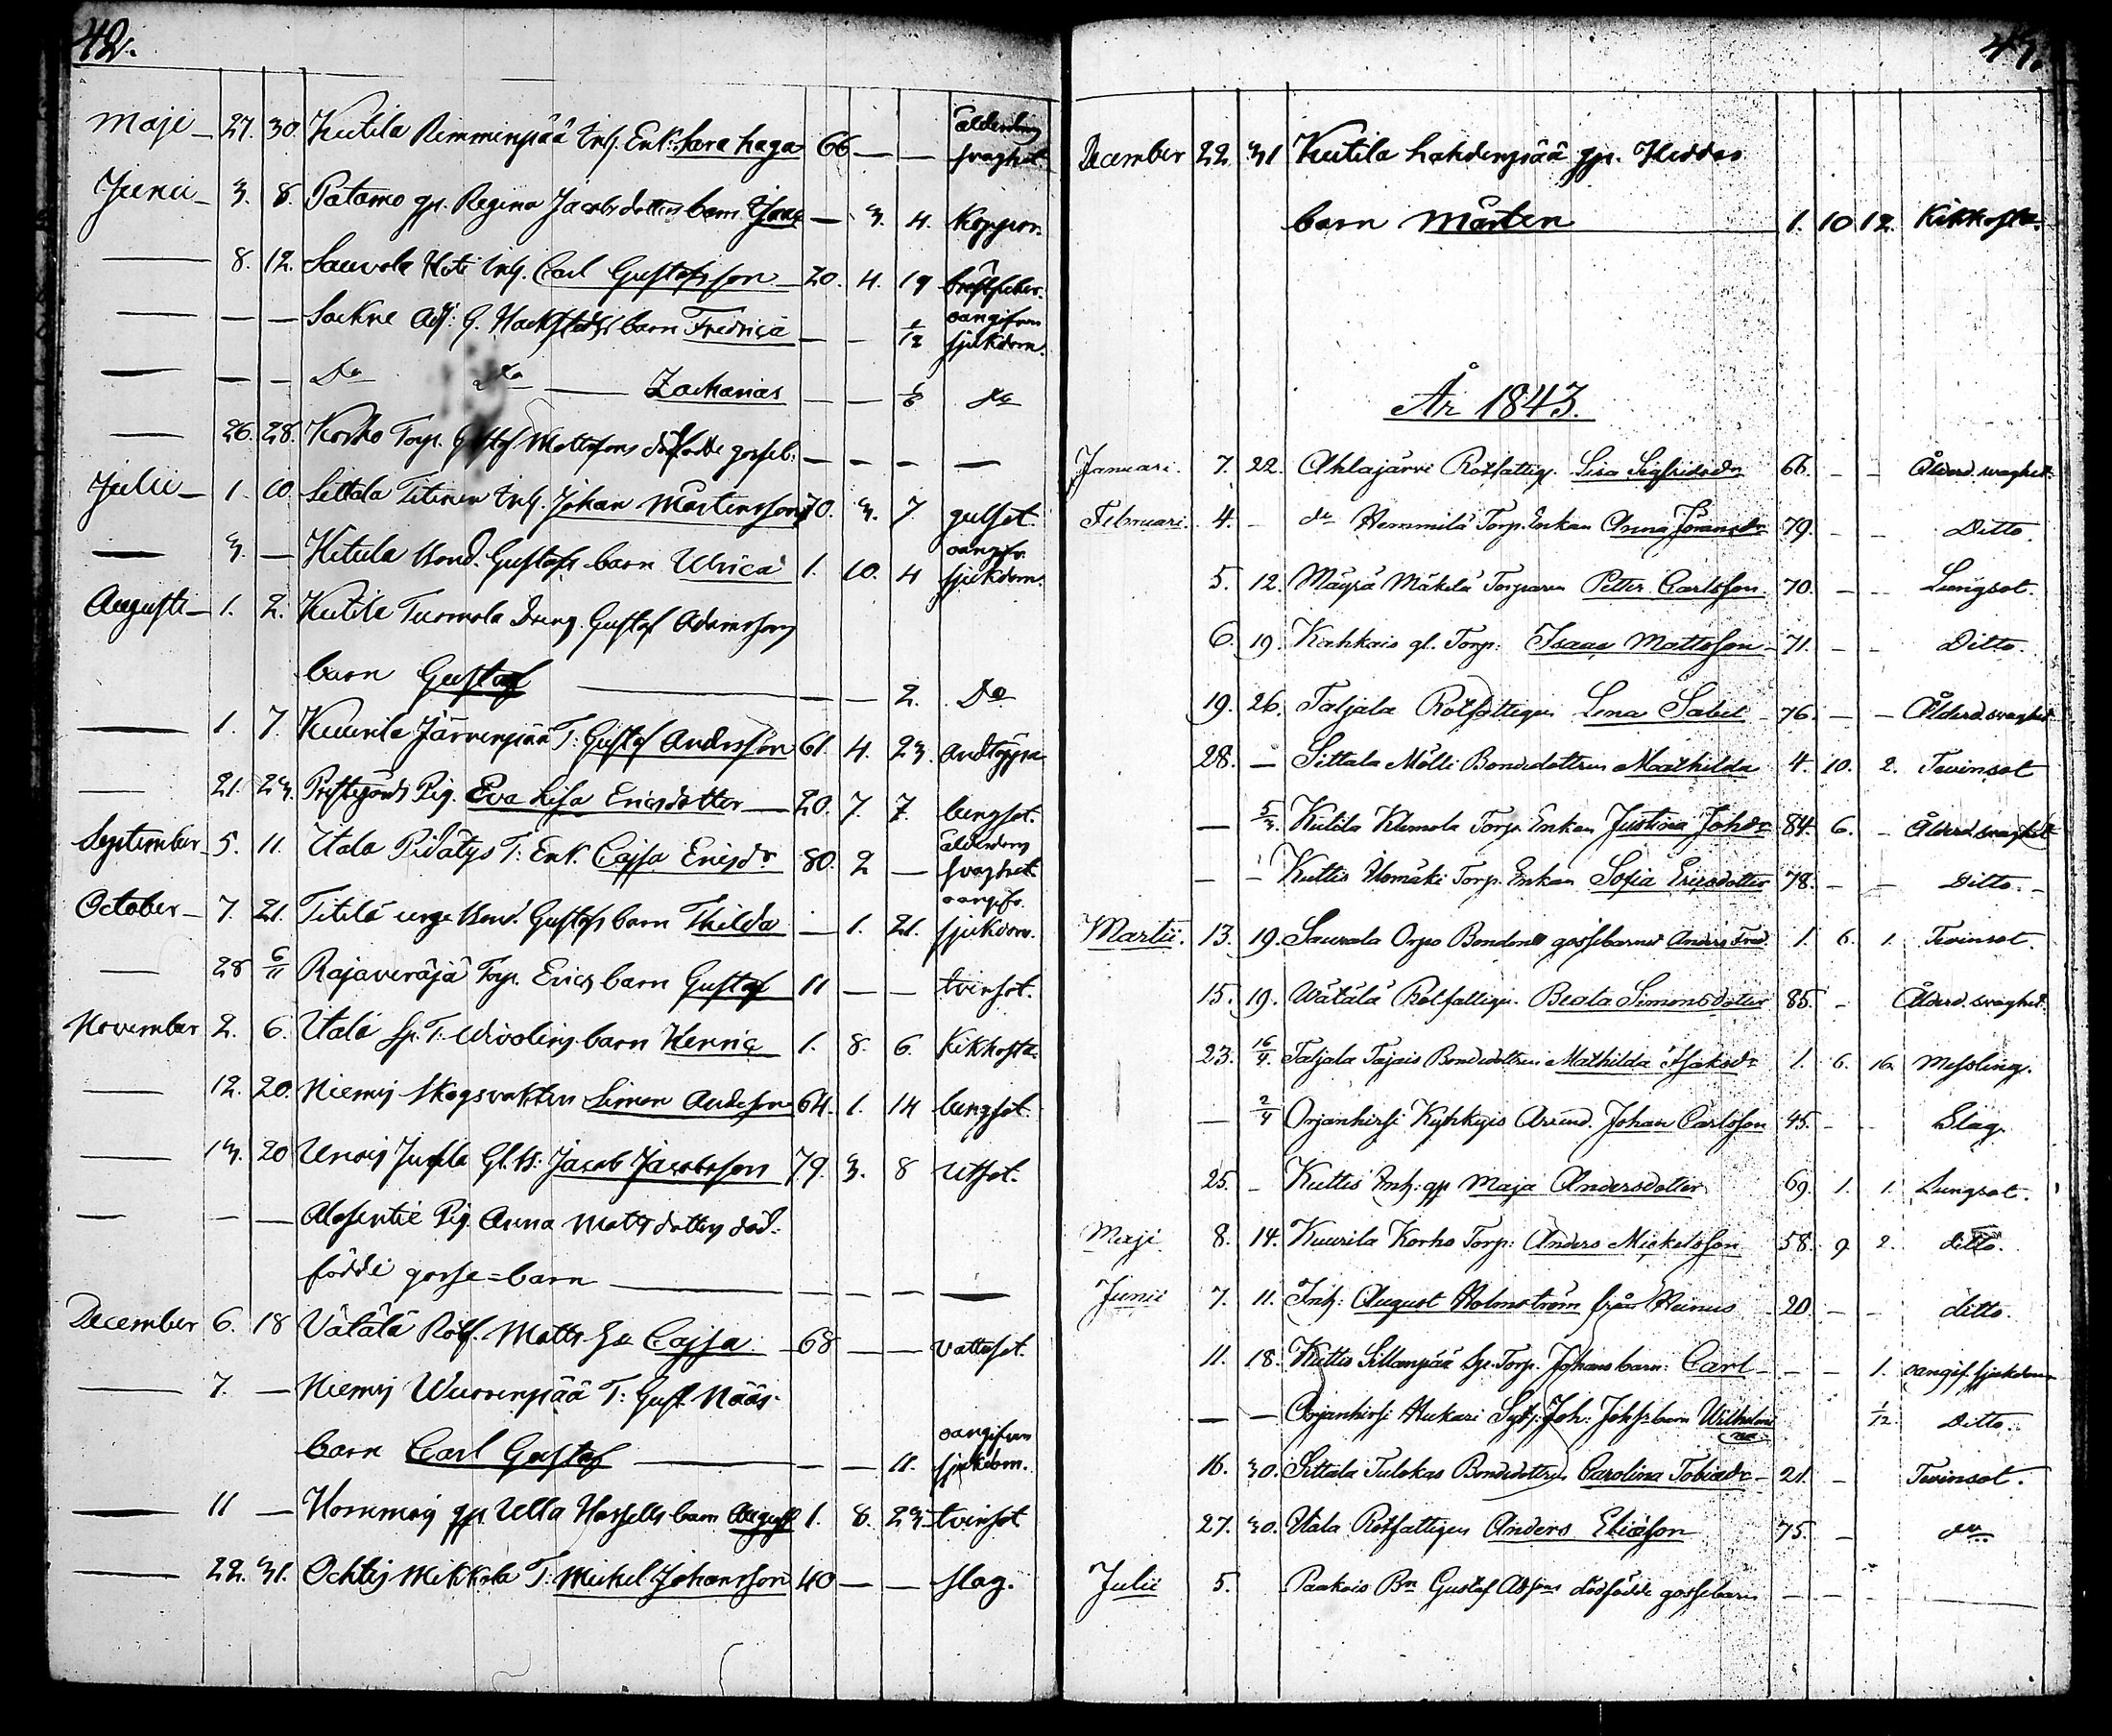 42.
Maji 27. 30. Kutila Remminpää Inh. Enk: Sara Haga 66 — — ålderdoms svaghet
Junii 3. 8. Patamo gp. Regina Jacobsdotters barn — 3. 4. Koppor.
— 8. 12. Sauvola Inh. Carl Gustafsson 20. 4. 19
— — — Saekne G. barn Fredrica — — 1/12 oangifven sjukdom.
— — — Do Do — Zacharias — — 1/6 do
— 26. 28. Korko Torp. Gustaf Mattssons dödfödde gosseb: — — — —
Julii 1. 10. Sittala Titinen Inh. Johan Mårtensson 70. 3. 7. gulsot.
— 3. — Kitula Bond. Gustafs barn Ulrica 1. 10. 4 oangifv. sjukdom.
Augusti 1. 2. Kutila Tuomola Dreng. Gustaf Adamssons
barn Gustaf — — — 2. Do
— 1. 7. Kuurila Järvenpää T: Gustaf Andersson 61. 4. 23. andtäppa
— 21. 23. Prestgårds Pig. Eva Lisa Ericsdotter — 20. 7. 7. lungsot.
September 5. 11. Utala Pidätys T: Enk. Cajsa Ericsdr 80. 2 — ålderdoms svaghet
October 7. 21. Titilä unge Bond. Gustafs barn Thilda — 1. 21. oangifv. sjukdom.
— 28 6/11 Rajaveräjä Torp. Erics barn Gustaf 11 — — tvinsot.
November 2. 6. Utala Sp. T: barn Henric 1. 8. 6. Kikhosta.
— 12. 20. Niemis Skogsvakten Simon Andersson 64. 1. 14 lungsot
— 13. 20 Uhois Jusela Gl. B: Jacob Jacobsson 79. 3. 8 Utsot.
— — — Alasentie Pig. Anna Matts dotters död-
födde gosse=barn — — — — —
December 6. 18 Vätälä Rotf. Matts Ea Cajsa 68 — — vattusot.
— 7. — Niemis Wuorenpää T: Gust. Nääs-
barn Carl Gustaf — — — 11. oangifven sjukdom.
— 11 — Hommois gp. Ulla Hassells barn August 1. 8. 23. tvinsot
— 22. 31. Ochtis Mikkola T: Mickel Johansson 40 — — slag.
43.
December 22. 31 Kutila Lahdenpää gp. Heddas
barn Mårten 1. 10. 12. Kikhosta.
År 1843.
Januari. 7. 22. Ahlajärvi Rotfattig. Lisa Sigfridsdr 66. — — Ålderd. svaghet.
Februari 4. - do Hemmilä Torp. Enkan Anna Göransdr 79. — — Ditto.
5. 12. Mäyrä Mäkelä Torparen Petter Carlsson. 70. — — Lungsot.
6. 19. Kahkais gl. Torp: Isaac Mattsson 71. — — Ditto.
19. 26. Taljala Rotfattigen Lena Sabel 76. — — Ålderd. svaghet
28. — Sittala Mölli Bondedottren Mathilda 4. 10. 2. Tvinsot
— 5/3. Kutila Klemola Torp. Enkan Justina Johdr 84. 6. — Ålderd. svaghet
— — Kuttis Ylomäki Torp. Enkan Sofia Ericsdotter 78. — — Ditto. —
Martii. 13. 19. Sauvala Orpo Bondens gossebarn Anders Fred. 1. 6. 1. Tvinsot.
15. 19. Wätälä Rotfattigen Beata Simonsdotter 85. — Ålderd. svaghet.
23. 16/4. Taljala Tajais Bondedottren Mathilda Isaksdr 1. 6. 16. Messling.
— 2/4 Orjanhirsi Kyhkyis Arend. Johan Carlsson 45. — — Slag.
25. — Kuttis Inh: gp Maja Andersdotter 69. 1. 1. Lungsot.
Maji 8. 14. Kuurila Korko Torp: Anders Mickelsson 58. 9 2. ditto.
Junii 7. 11. Inh: August Holmström från Heinus 20. — — ditto.
11. 18. Kuttis Sillanpää Sp. Torp. Johans barn: Carl — — 1. oangif. sjukdom
— — Orjanhirsi Hukari Joh: Johss barn Wilhelmina 1/12. Ditto.
16. 30. Sittala Tulokas Bondedottren Carolina Tobiasdr 21. — Tvinsot.
27. 30. Utala Rotfattigen Anders Eliasson 75. — do
Julii 5. Paakais Bn Gustaf Adssons dödfödde gossebarn — — —